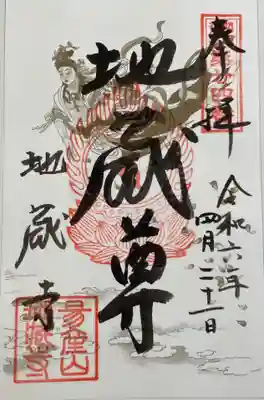 奉拝
令和六年
四月二十一日
地蔵尊
地蔵寺